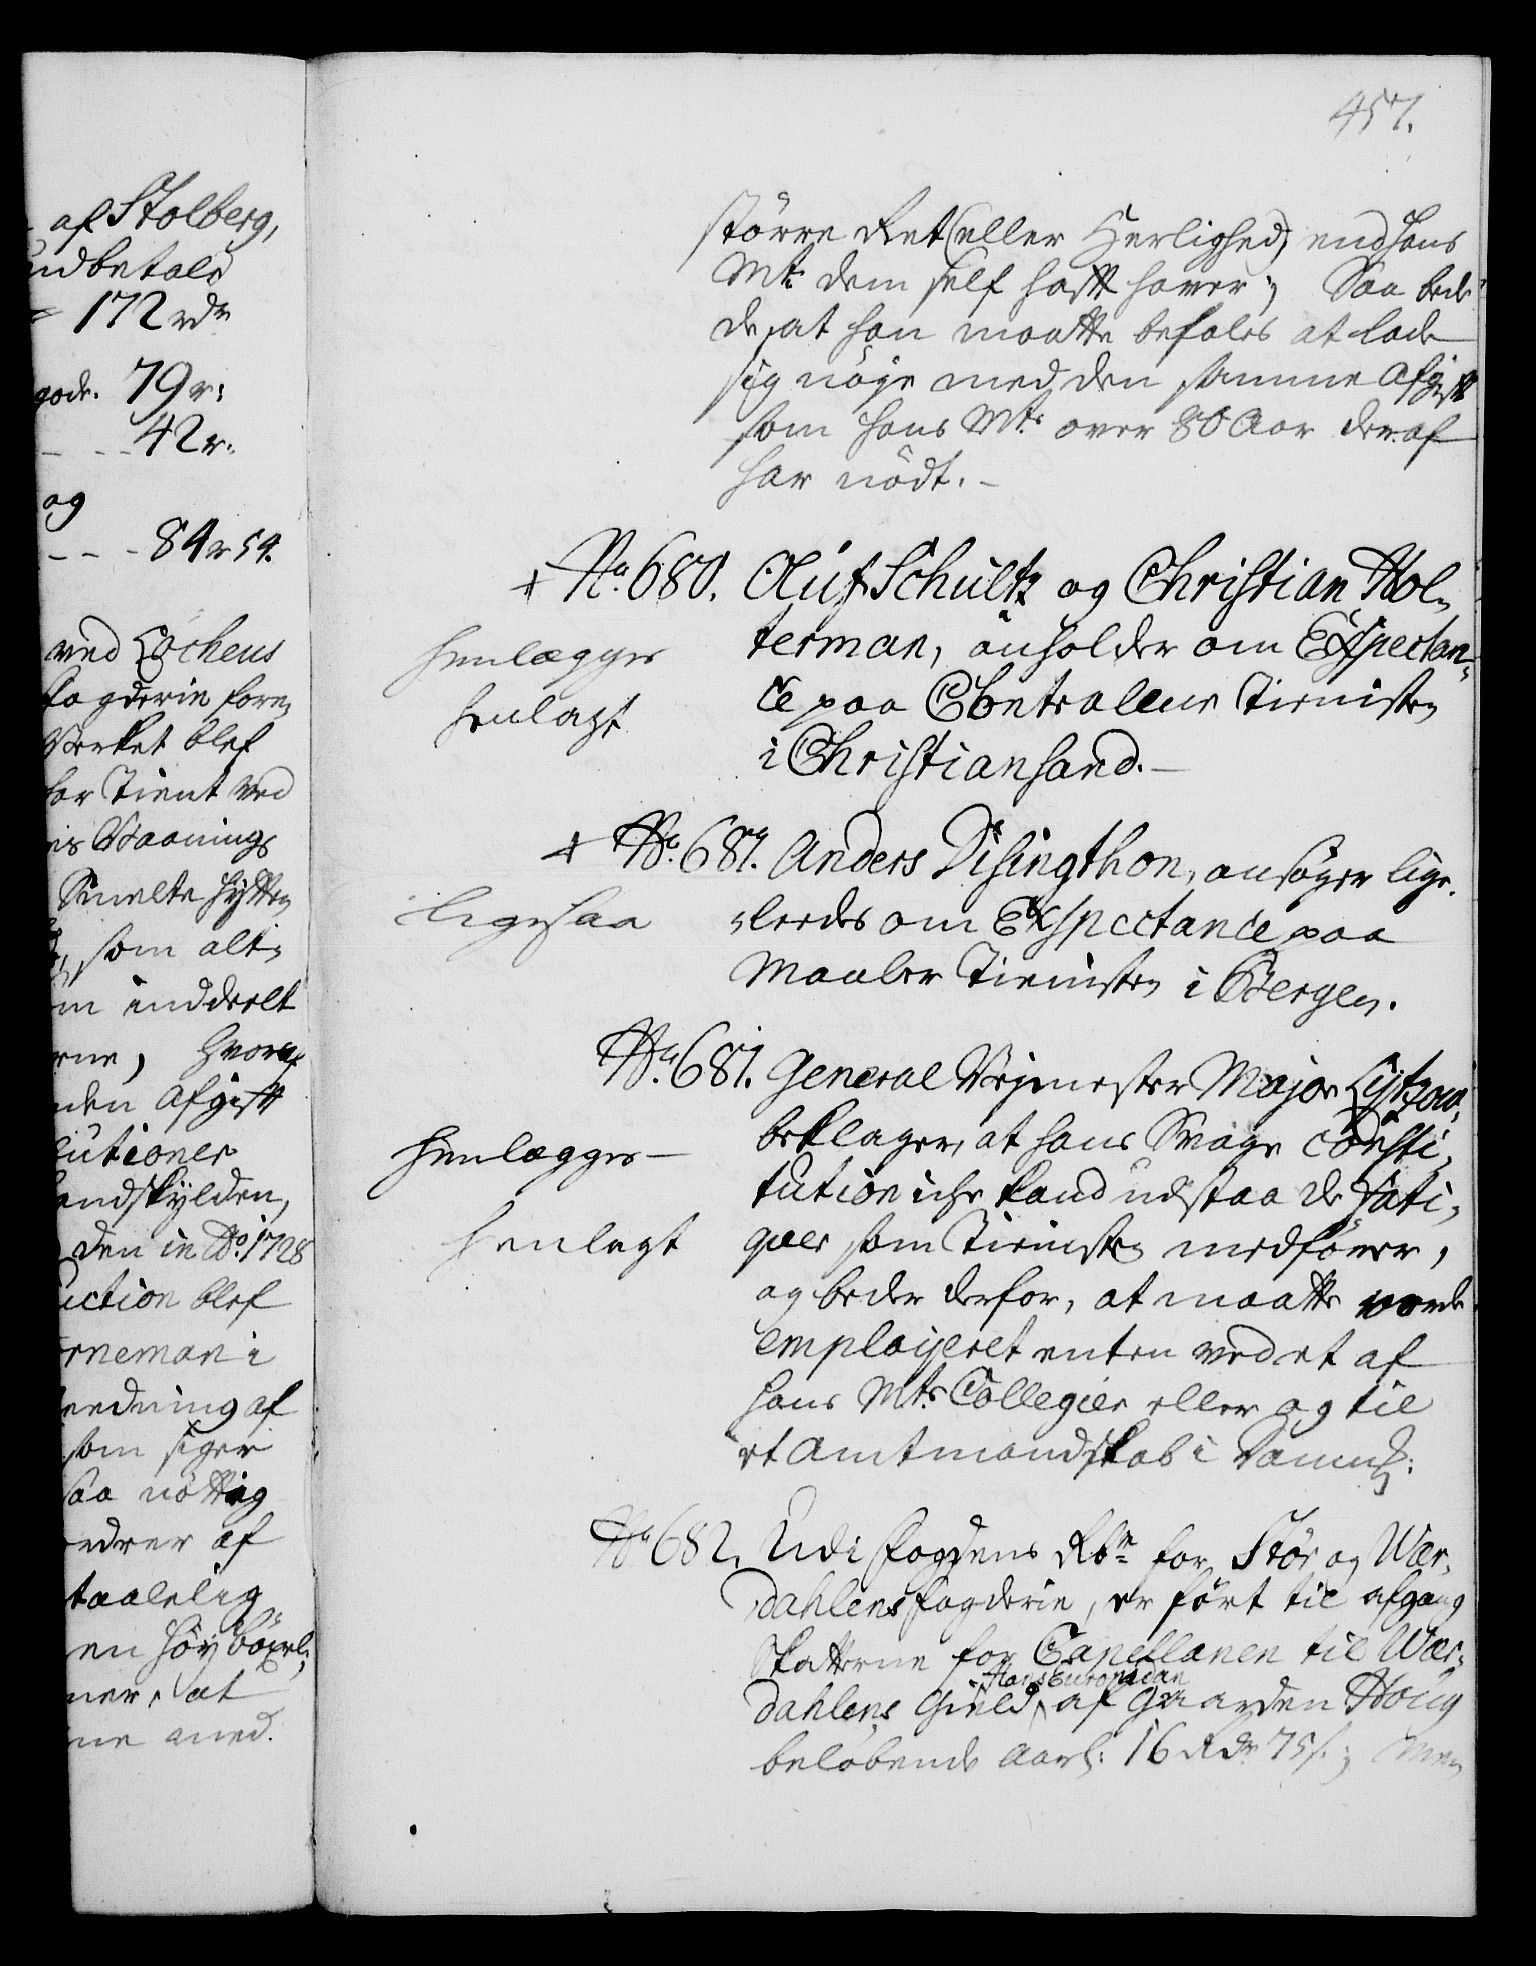 457.
af Stolberg,
udbetale
172 rdr
gode. 79 r:
42 r:
og
84 r 54.
ved Lochens
fogderie foren
Verket blef
for Tient ved
Vaanings
Smelte hytten
som alt
inddeelt
rne, hvoraf
den Afgift
lutioner
andskylden,
den in Ao. 1728
uction blef
rneman i
eedning af
som siger
saa nöttig
edrer af
taalelig
en höybaarl:
ner, at
ne med.
större Ret (eller Herlighed) end hans
Mt: dem self haft hafver; Saa bede
de, at han maatte befales at lade
sig nöye med den samme Afgift
som hans Mts. over 80 Aar deraf
har nödt. –
+ No. 680. Oluf Schultz og Christian Hol-
terman, anholder om Exspectan-
ce paa Controlleur Tienisten
i Christiansand. –
henlægges
henlagt
+ No. 681. Anders Disingthon, ansöger lige-
leedes om Exspectance paa
Maaler Tienisten i Bergen.
ligesaa
No. 681. General Vejmester Major Lytzow,
beklager, at hans Svage Consti-
tution iche kand udstaa de Fati-
quer som Tienisten medförer,
og beder derfor, at maatte vorde
employeret enten ved et af
hans Mts. Collegier eller og til
et Amtmandskab i Danm:
henlægges –
henlagt
No. 682. Udi fogdens Rgn. for Stör og Wær-
dahlens fogderie, er fört til afgang
Skatterne for Capellanen til Wær-
Hans Europæan
dahlens Gield, af Gaarden Houg
belöbende aarl: 16 Rdr. 75 s.; Men